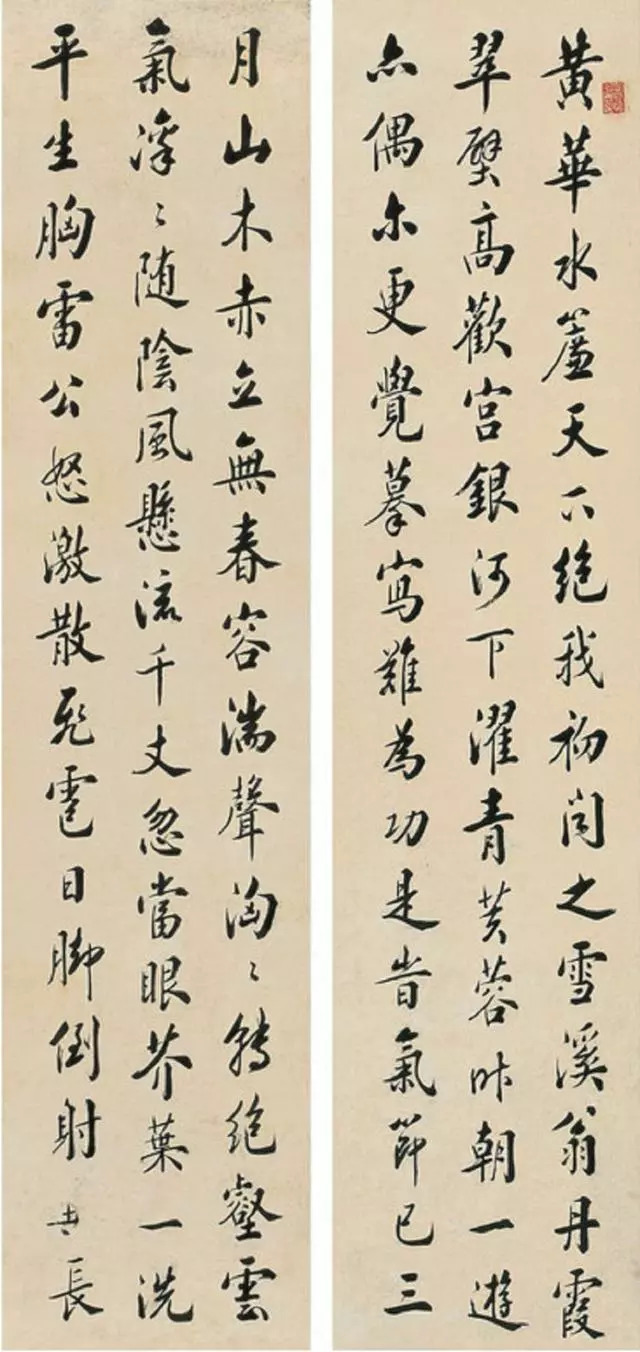 黃華水簾天下絕我初聞之雪溪翁丹霞
翠壁高歡宮銀河下濯青芙蓉昨朝一遊
亦偶尒更覺摹寫難為功是旹氣節已三
月山木赤立無春容湍聲洶〻轉絕壑雲
氣凜〻随陰風懸流千丈忽當眼芥葉一洗
平生胸雷公怒激散飛雹日脚倒射垂長